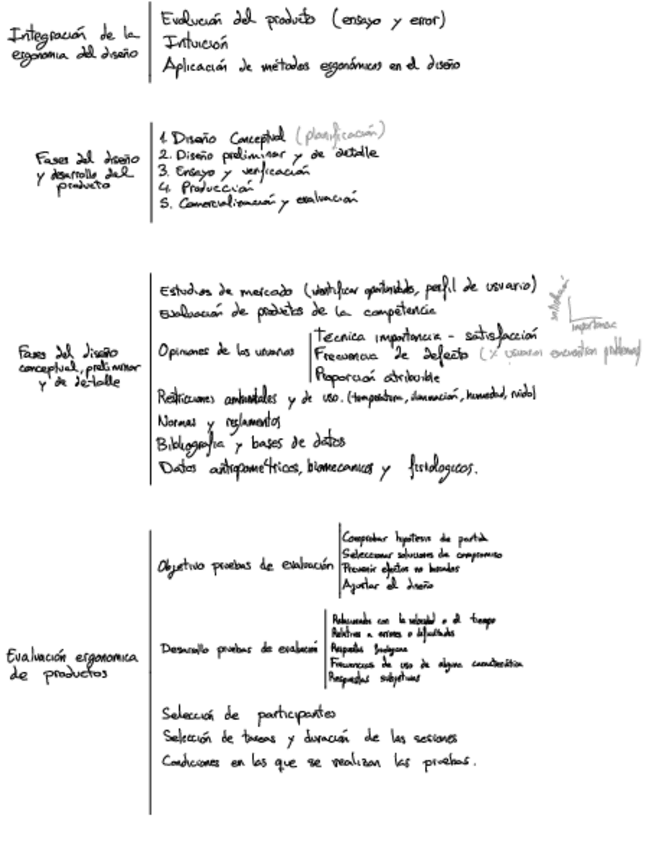 Integración de la
ergonomia del diseño
Evolución del producto (ensayo y error)
Intuición
Aplicación de métodos ergonómicos en el diseño
Fases del diseño
y desarrollo del
producto
1. Diseño Conceptual (planificación)
2. Diseño preliminar y de detalle
3. Ensayo y verificación
4. Producción
5. Comercialización y evaluación
Fases del diseño
conceptual, preliminar
y de detalle
Estudios de mercado (identificar oportunidades, perfil de usuario)
Evaluación de productos de la competencia
satisfacción
importancia
Opiniones de los usuarios
Técnica importancia - satisfacción
Frecuencia de defecto (% usuarios encuentran problemas)
Proporción atribuible
Restricciones ambientales y de uso. (temperatura, iluminación, humedad, ruido)
Normas y reglamentos
Bibliografia y bases de datos
Datos antropométricos, biomecanicos y fisiologicos.
Evaluación ergonomica
de productos
Objetivo pruebas de evaluación
Comprobar hipotesis de partida
Seleccionar soluciones de compromiso
Prevenir efectos no buscados
Ajustar el diseño
Desarrollo pruebas de evaluación
Relacionado con la velocidad o el tiempo
Relativos a errores o dificultades
Respuestas
Frecuencias de uso de alguna característica
Respuestas subjetivas
Selección de participantes
Selección de tareas y duración de las sesiones
Condiciones en las que se realizan las pruebas.